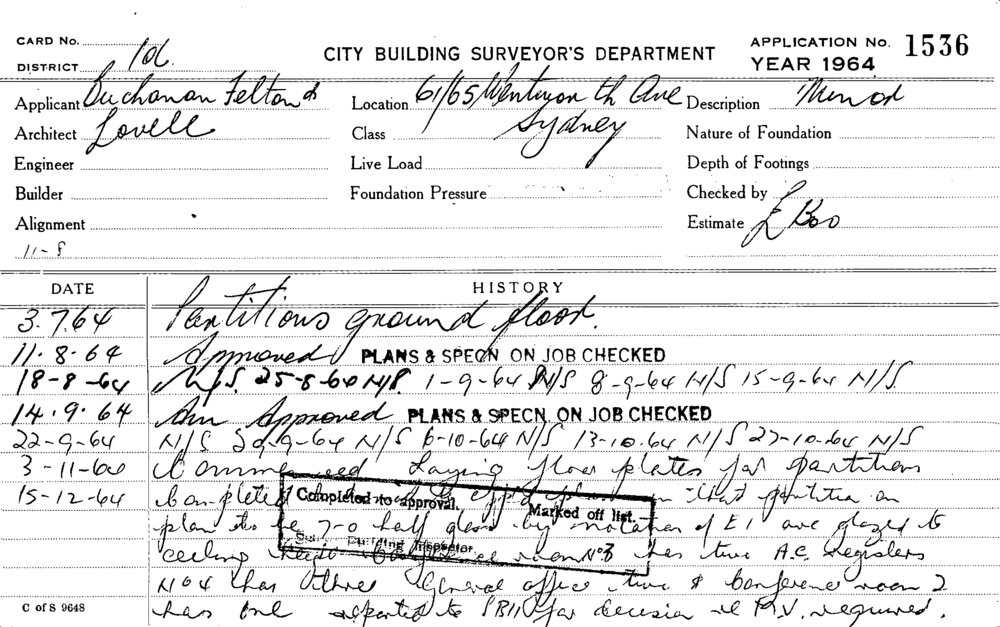 CARD No.
DISTRICT 1d.
CITY BUILDING SURVEYOR'S DEPARTMENT
APPLICATION No. 1536
YEAR 1964
Applicant Buchanan Felton &
Location 61/65 Wentworth Ave
Description Minor
Architect Lovell
Class Sydney
Nature of Foundation
Engineer
Live Load
Depth of Footings
Builder
Foundation Pressure
Checked by
Alignment
Estimate £
11-8
DATE HISTORY
3.7.64 Partitions ground floor.
11.8.64 Approved PLANS & SPECN ON JOB CHECKED
18-8-64 N/S. 25-8-64 N/S. 1-9-64 N/S 8-9-64 N/S 15-9-64 N/S.
14.9.64 Am Approved PLANS & SPECN. ON JOB CHECKED
22-9-64 N/S 29-9-64 N/S 6-10-64 N/S 13-10.64 N/S 27-10-64 N/S
3-11-64 Commenced Laying floor plates for partitions
15-12-64 Completed that partition on
Completed to approval. Marked off list.
plan to be 7-0 half glass by notation of E1 are glazed to
Building Inspector.
ceiling room No3 has two A.C. registers
No 4 has three General office two & Conference room 2
has one reported to for decision re M.V. required.
C of S 9648